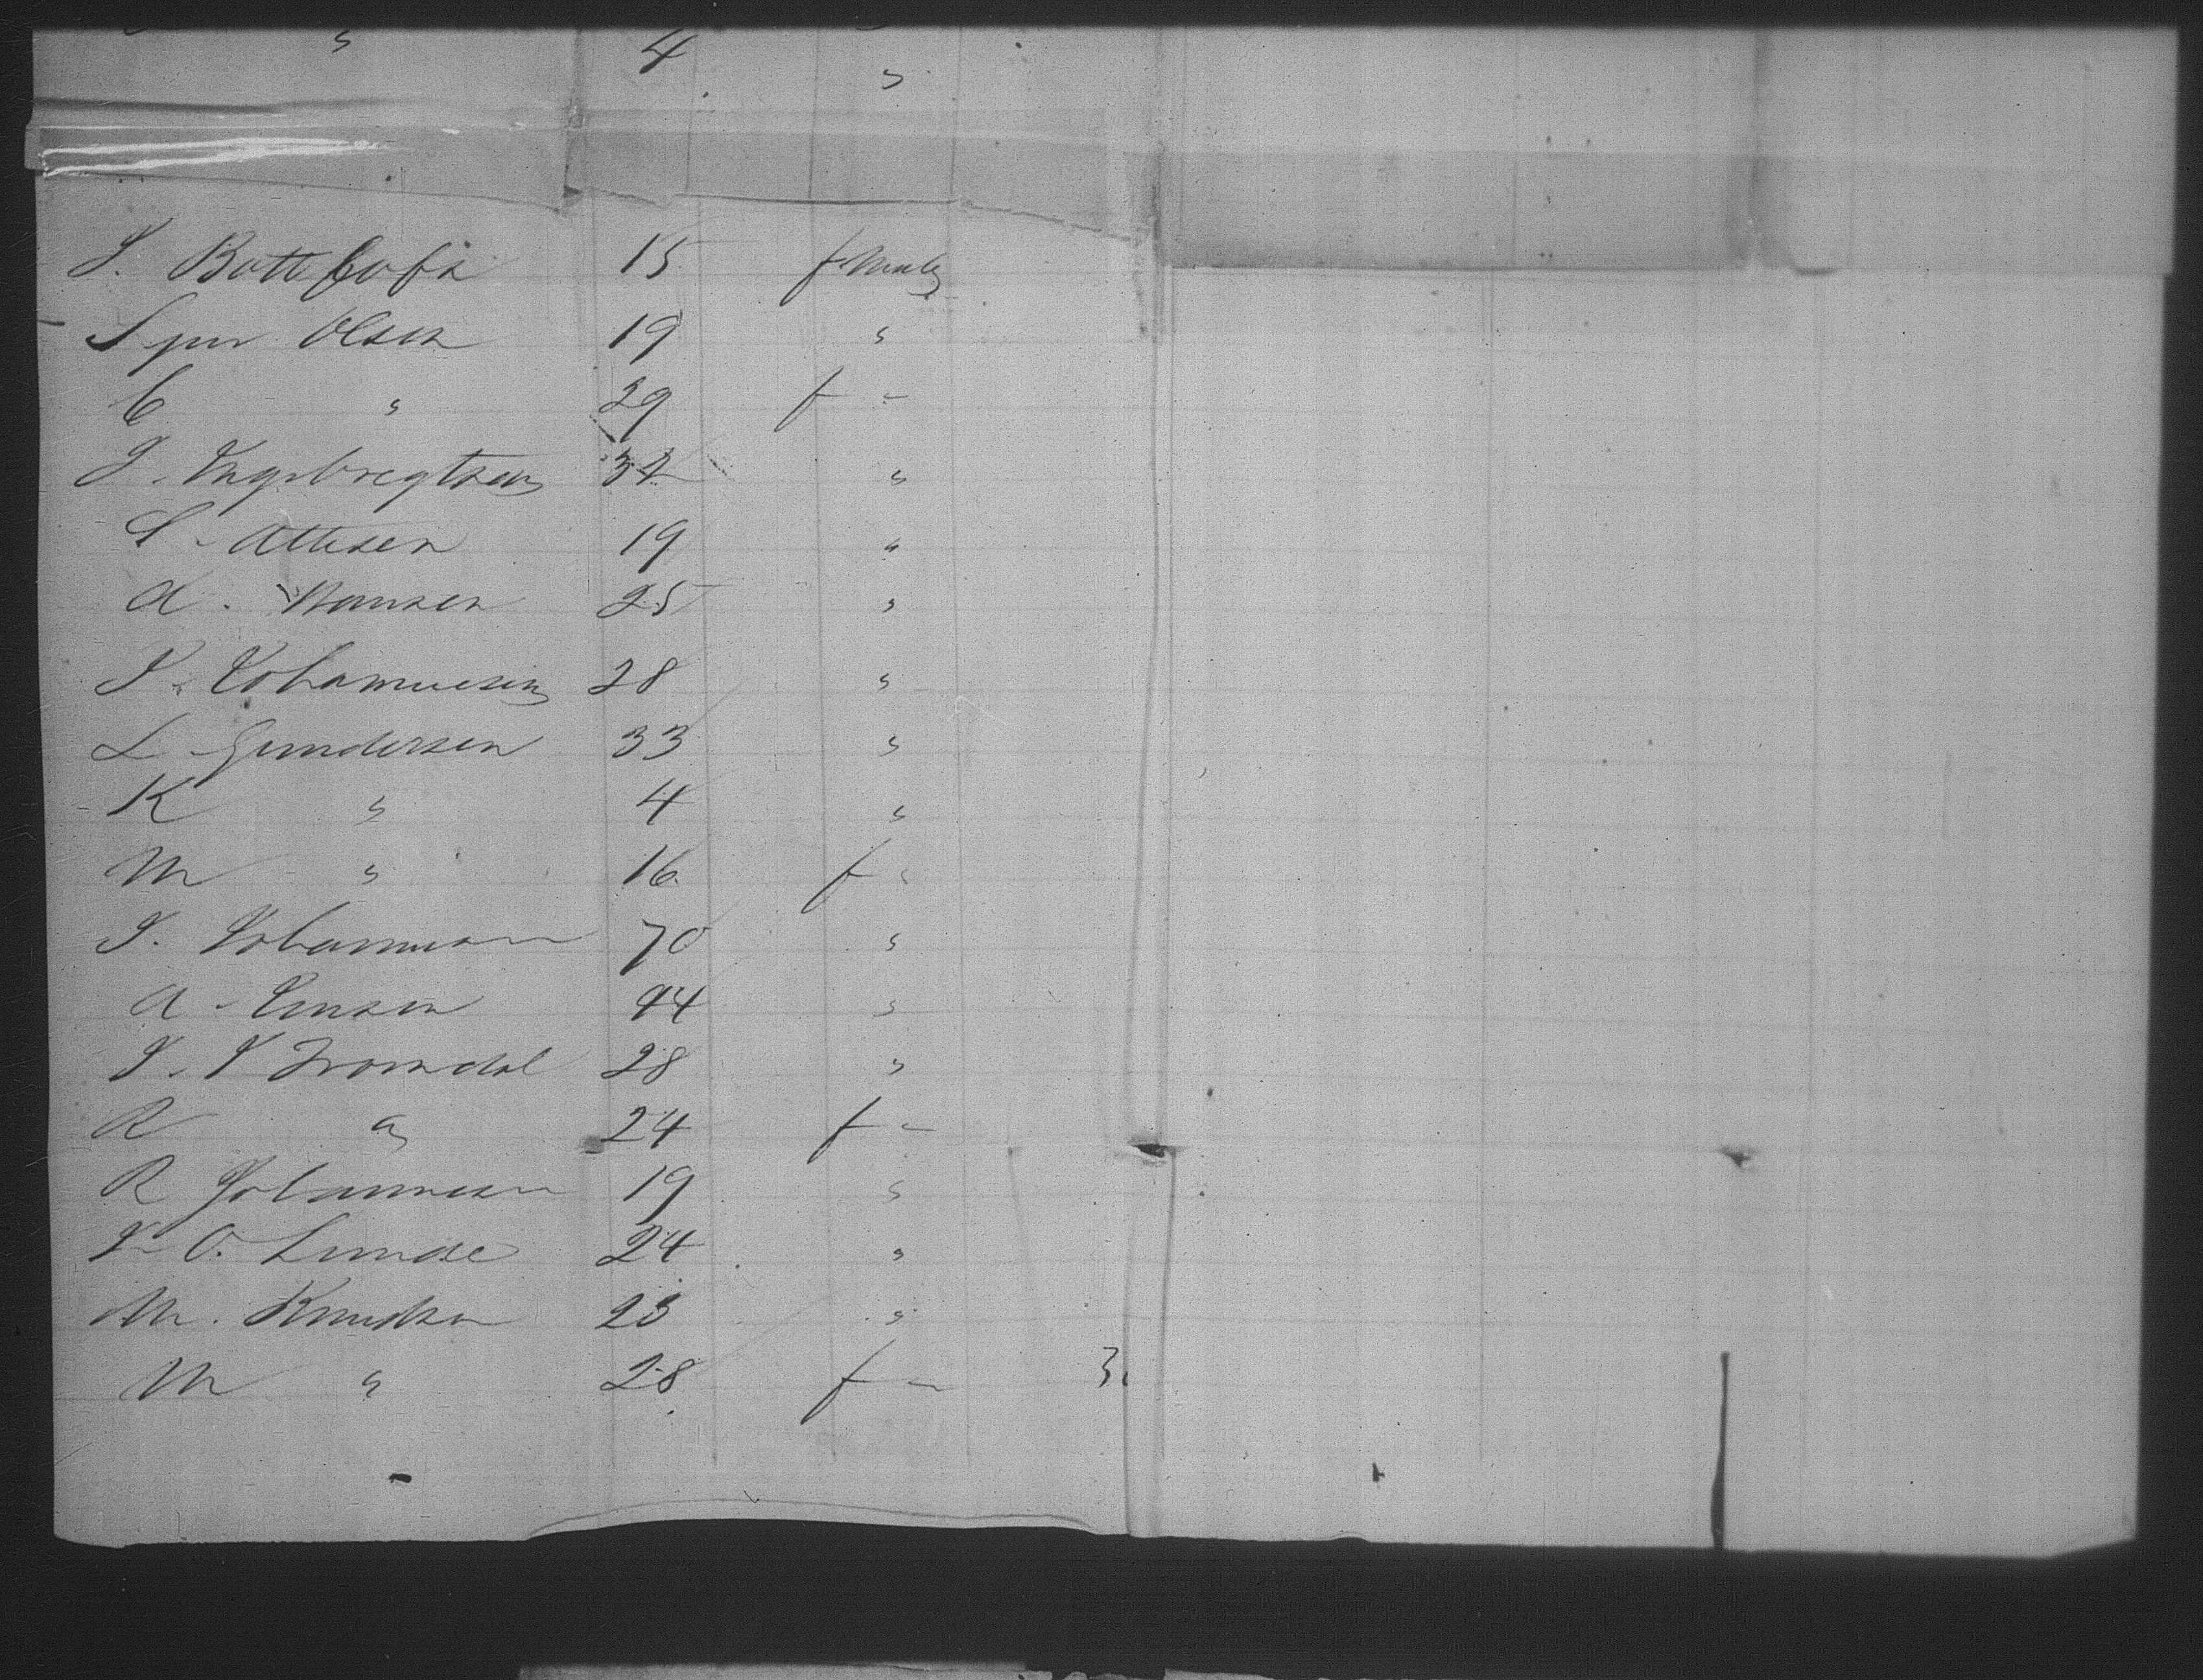 " 4 "
S. 15 f Male
Olsen 19 "
C " 29 f "
J. Ingebregtsen 34 "
S. Attesen 19 "
A. Hansen 25 "
J. Johannesen 28 "
L Gundersen 33 "
K " 4 "
M " 16 f "
J. Johannesen 70 "
A. Jensen 44 "
J. J Tromdal 28 "
R " 24 f "
R Johannesen 19 "
J. O. Lunde 24 "
M. Knudsen 23 "
M " 28 f "